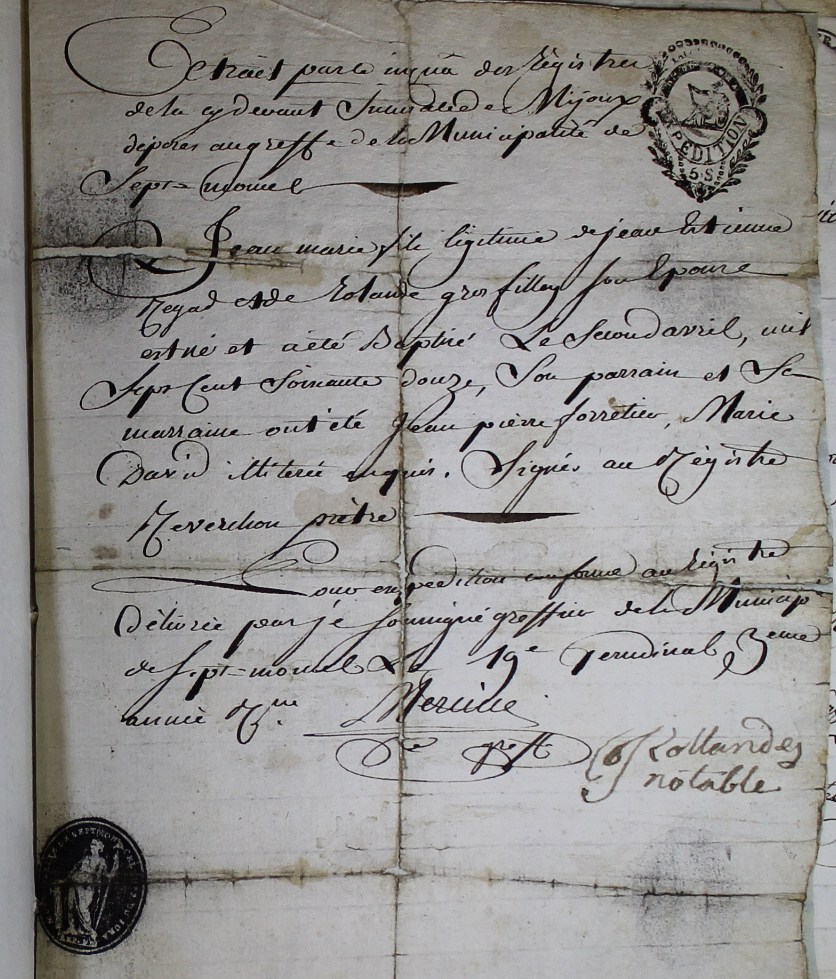 Extrait par le inquá des Régistres
de la cy devant Succursale de Mijoux
déposés au greffe de la Municipalité de
Sept-moncel
Jean marie fils légitime de jean Etienne
Regad et de Rolande gros fillex son Epouse
est né et a été Baptisé Le Second avril, mil
Sept Cent Soixante douze, Son parrain et Sa
marraine ont été Jean pierre forretier, Marie
David illiterée enquis. Signés au Régistre
Reverchon prêtre
Pour expedition conforme au Régistre
Délivrée par je soussigné greffier de la Municip
de Sept-moncel Le 19e Germinal 3eme
année Rne Mermet
Sre greff
Rollandez
notable
EXPEDITION
5.S